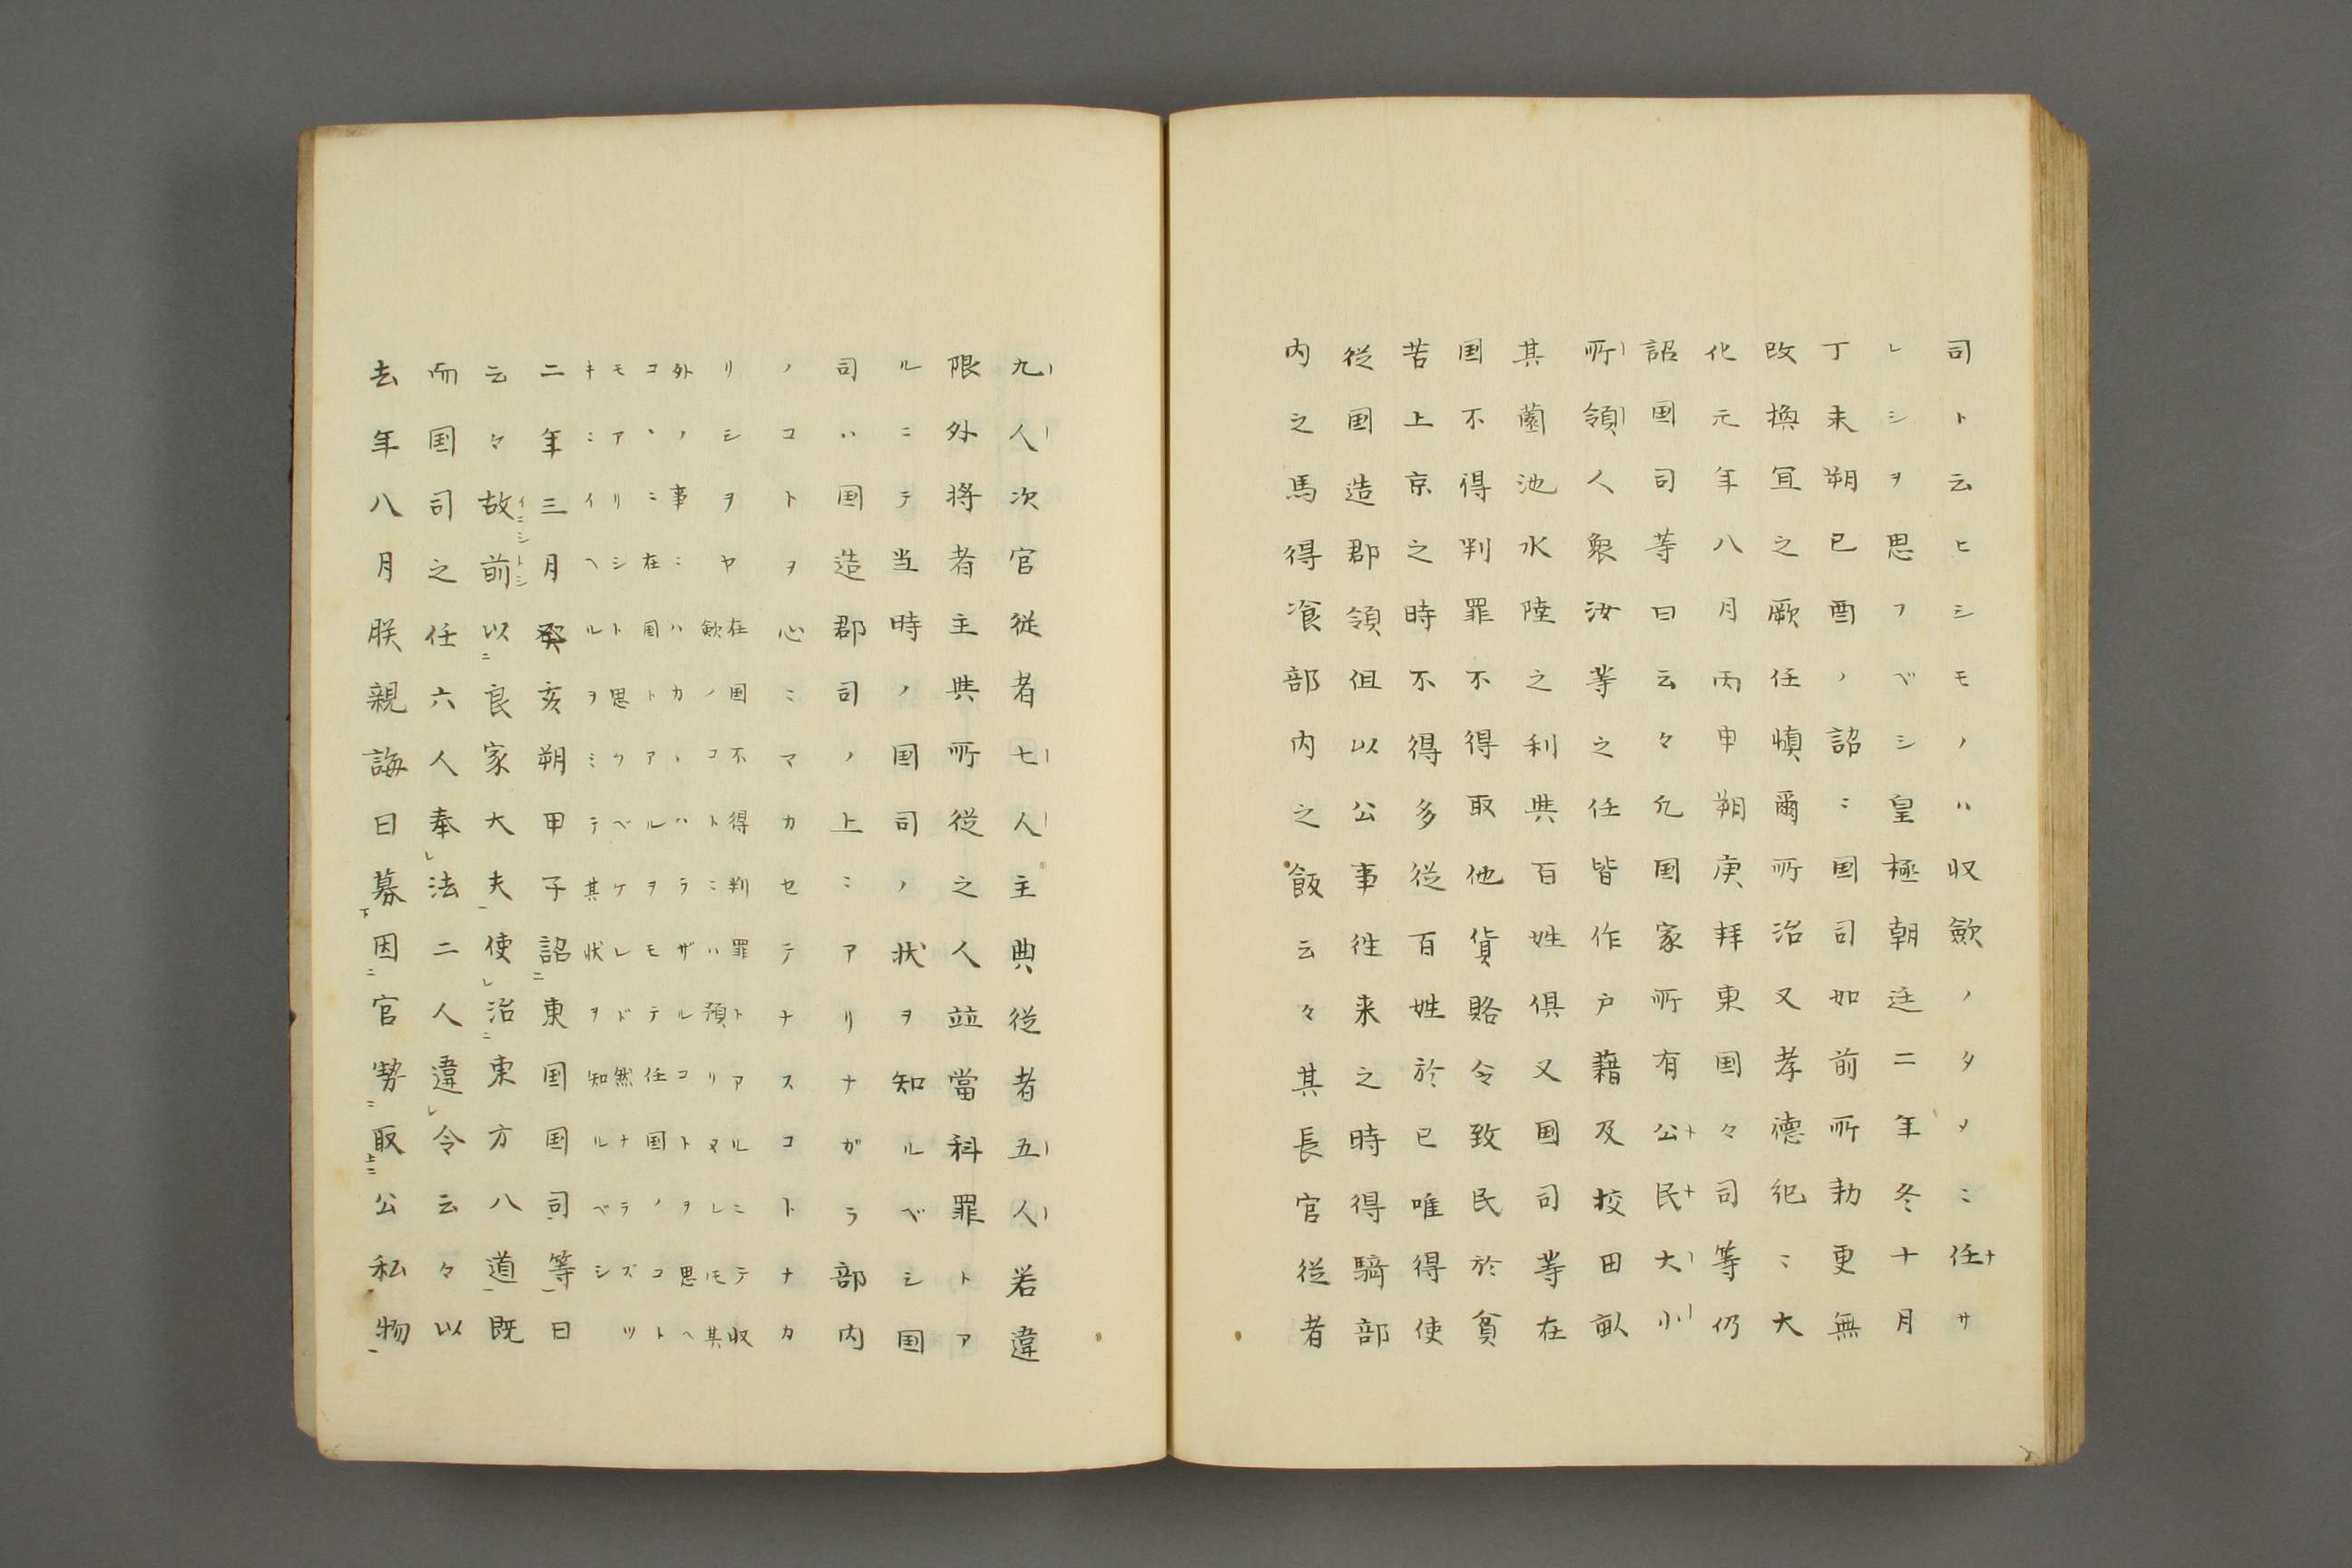 司ト云ヒシモノハ収歛ノタメニ任サ
レシヲ思フベシ皇極朝廷二年冬十月
丁未朔已酉ノ詔ニ国司如前所勅更無
改換宜之厥任慎爾所治又孝德紀ニ大
化元年八月丙申朔庚拝東国々司等仍
詔国司等曰云々凢国家所有公民大小
所領人衆汝等之任皆作戸藉及挍田畝
其薗池水陸之利與百姓俱又国司等在
国不得判罪不得取他貨賂令致民於貧
苦上京之時不得多従百姓於已唯得使
従国造郡領但以公事徃来之時得騎部
内之馬得飡部内之飯云々其長官従者
九人次官従者七人主典従者五人若違
限外将者主與所従之人並當科罪トア
ルニテ当時ノ国司ノ状ヲ知ルベシ国
司ハ国造郡司ノ上ニアリナガラ部内
ノコトヲ心ニマカセテナスコトナカ
リシヲヤ
在国不得判罪トアルニテ収
歛ノコトニハ預リヌレモ其
外ノ事ニハカヽハラザルコトヲ思ヘ
コヽニ在国トアルヲモテ任国ノコト
モアリシト思ウベケレド然ナラズツ
キニイヘルヲミテ其状ヲ知ルベシ
二年三月癸亥朔甲子詔東国国司等曰
云々故前以良家大夫使治東方八道既
イニシトシ
而国司之任六人奉法二人違令云々以
去年八月朕親誨曰募因官勢取公私物